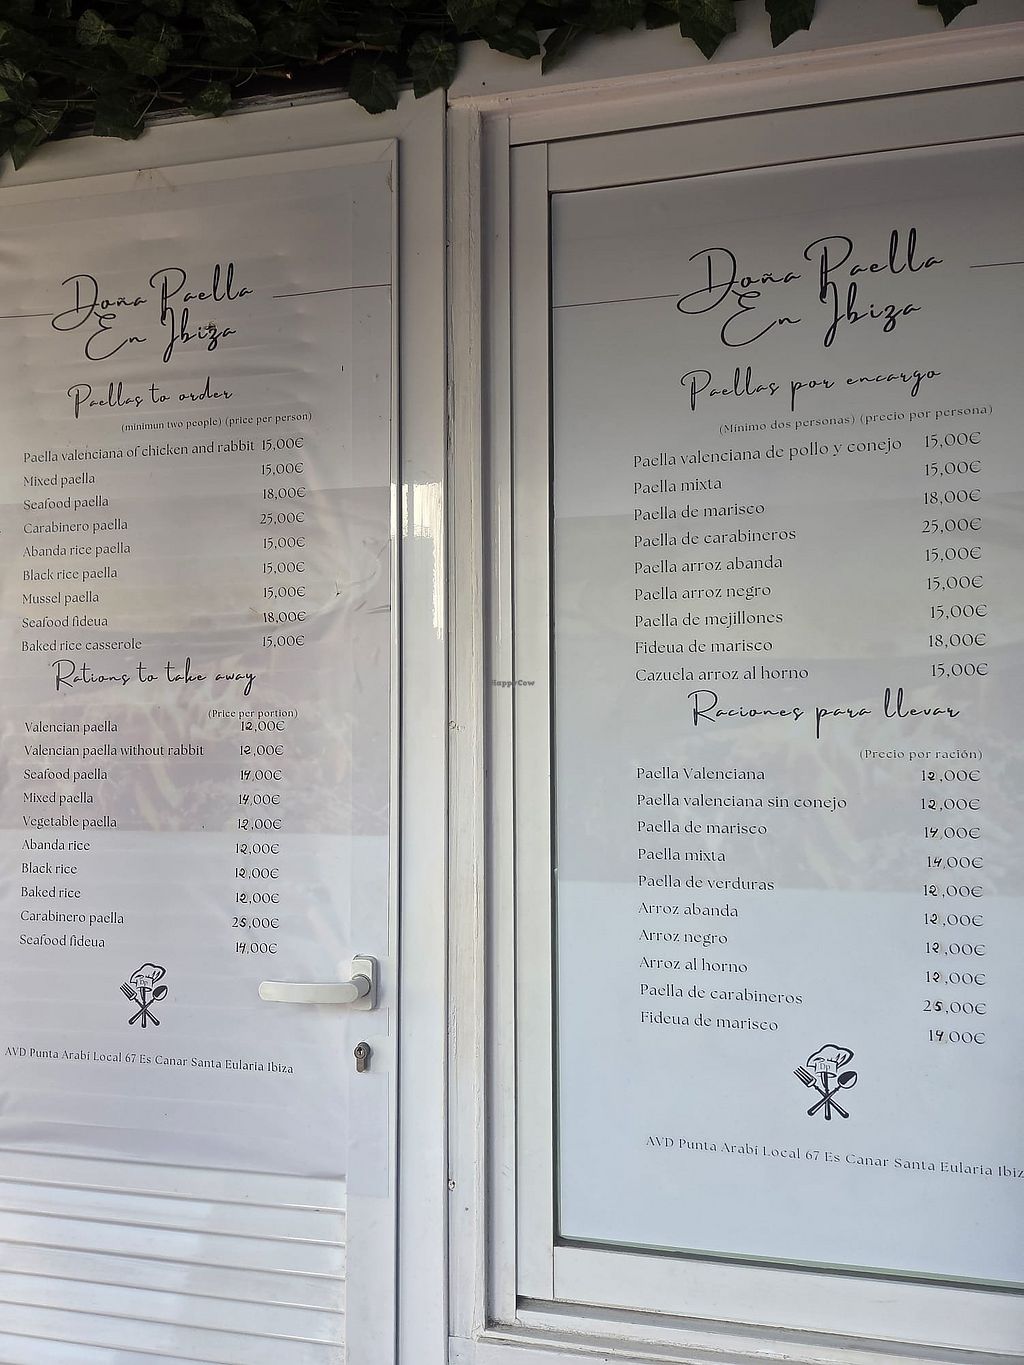 Doña Paella
En Ibiza
Paellas to order
(minimun two people) (price per person)
Paella valenciana of chicken and rabbit 15,00€
Mixed paella 15,00€
Seafood paella 18,00€
Carabinero paella 25,00€
Abanda rice paella 15,00€
Black rice paella 15,00€
Mussel paella 15,00€
Seafood fideua 18,00€
Baked rice casserole 15,00€
Rations to take away
(Price per portion)
Valencian paella 12,00€
Valencian paella without rabbit 12,00€
Seafood paella 14,00€
Mixed paella 14,00€
Vegetable paella 12,00€
Abanda rice 12,00€
Black rice 12,00€
Baked rice 12,00€
Carabinero paella 25,00€
Seafood fideua 14,00€
Dp
AVD Punta Arabí Local 67 Es Canar Santa Eularia Ibiza
HappyCow
Doña Paella
En Ibiza
Paellas por encargo
(Mínimo dos personas) (precio por persona)
Paella valenciana de pollo y conejo 15,00€
Paella mixta 15,00€
Paella de marisco 18,00€
Paella de carabineros 25,00€
Paella arroz abanda 15,00€
Paella arroz negro 15,00€
Paella de mejillones 15,00€
Fideua de marisco 18,00€
Cazuela arroz al horno 15,00€
Raciones para llevar
(Precio por ración)
Paella Valenciana 12,00€
Paella valenciana sin conejo 12,00€
Paella de marisco 14,00€
Paella mixta 14,00€
Paella de verduras 12,00€
Arroz abanda 12,00€
Arroz negro 12,00€
Arroz al horno 12,00€
Paella de carabineros 25,00€
Fideua de marisco 14,00€
Dp
AVD Punta Arabí Local 67 Es Canar Santa Eularia Ibiz